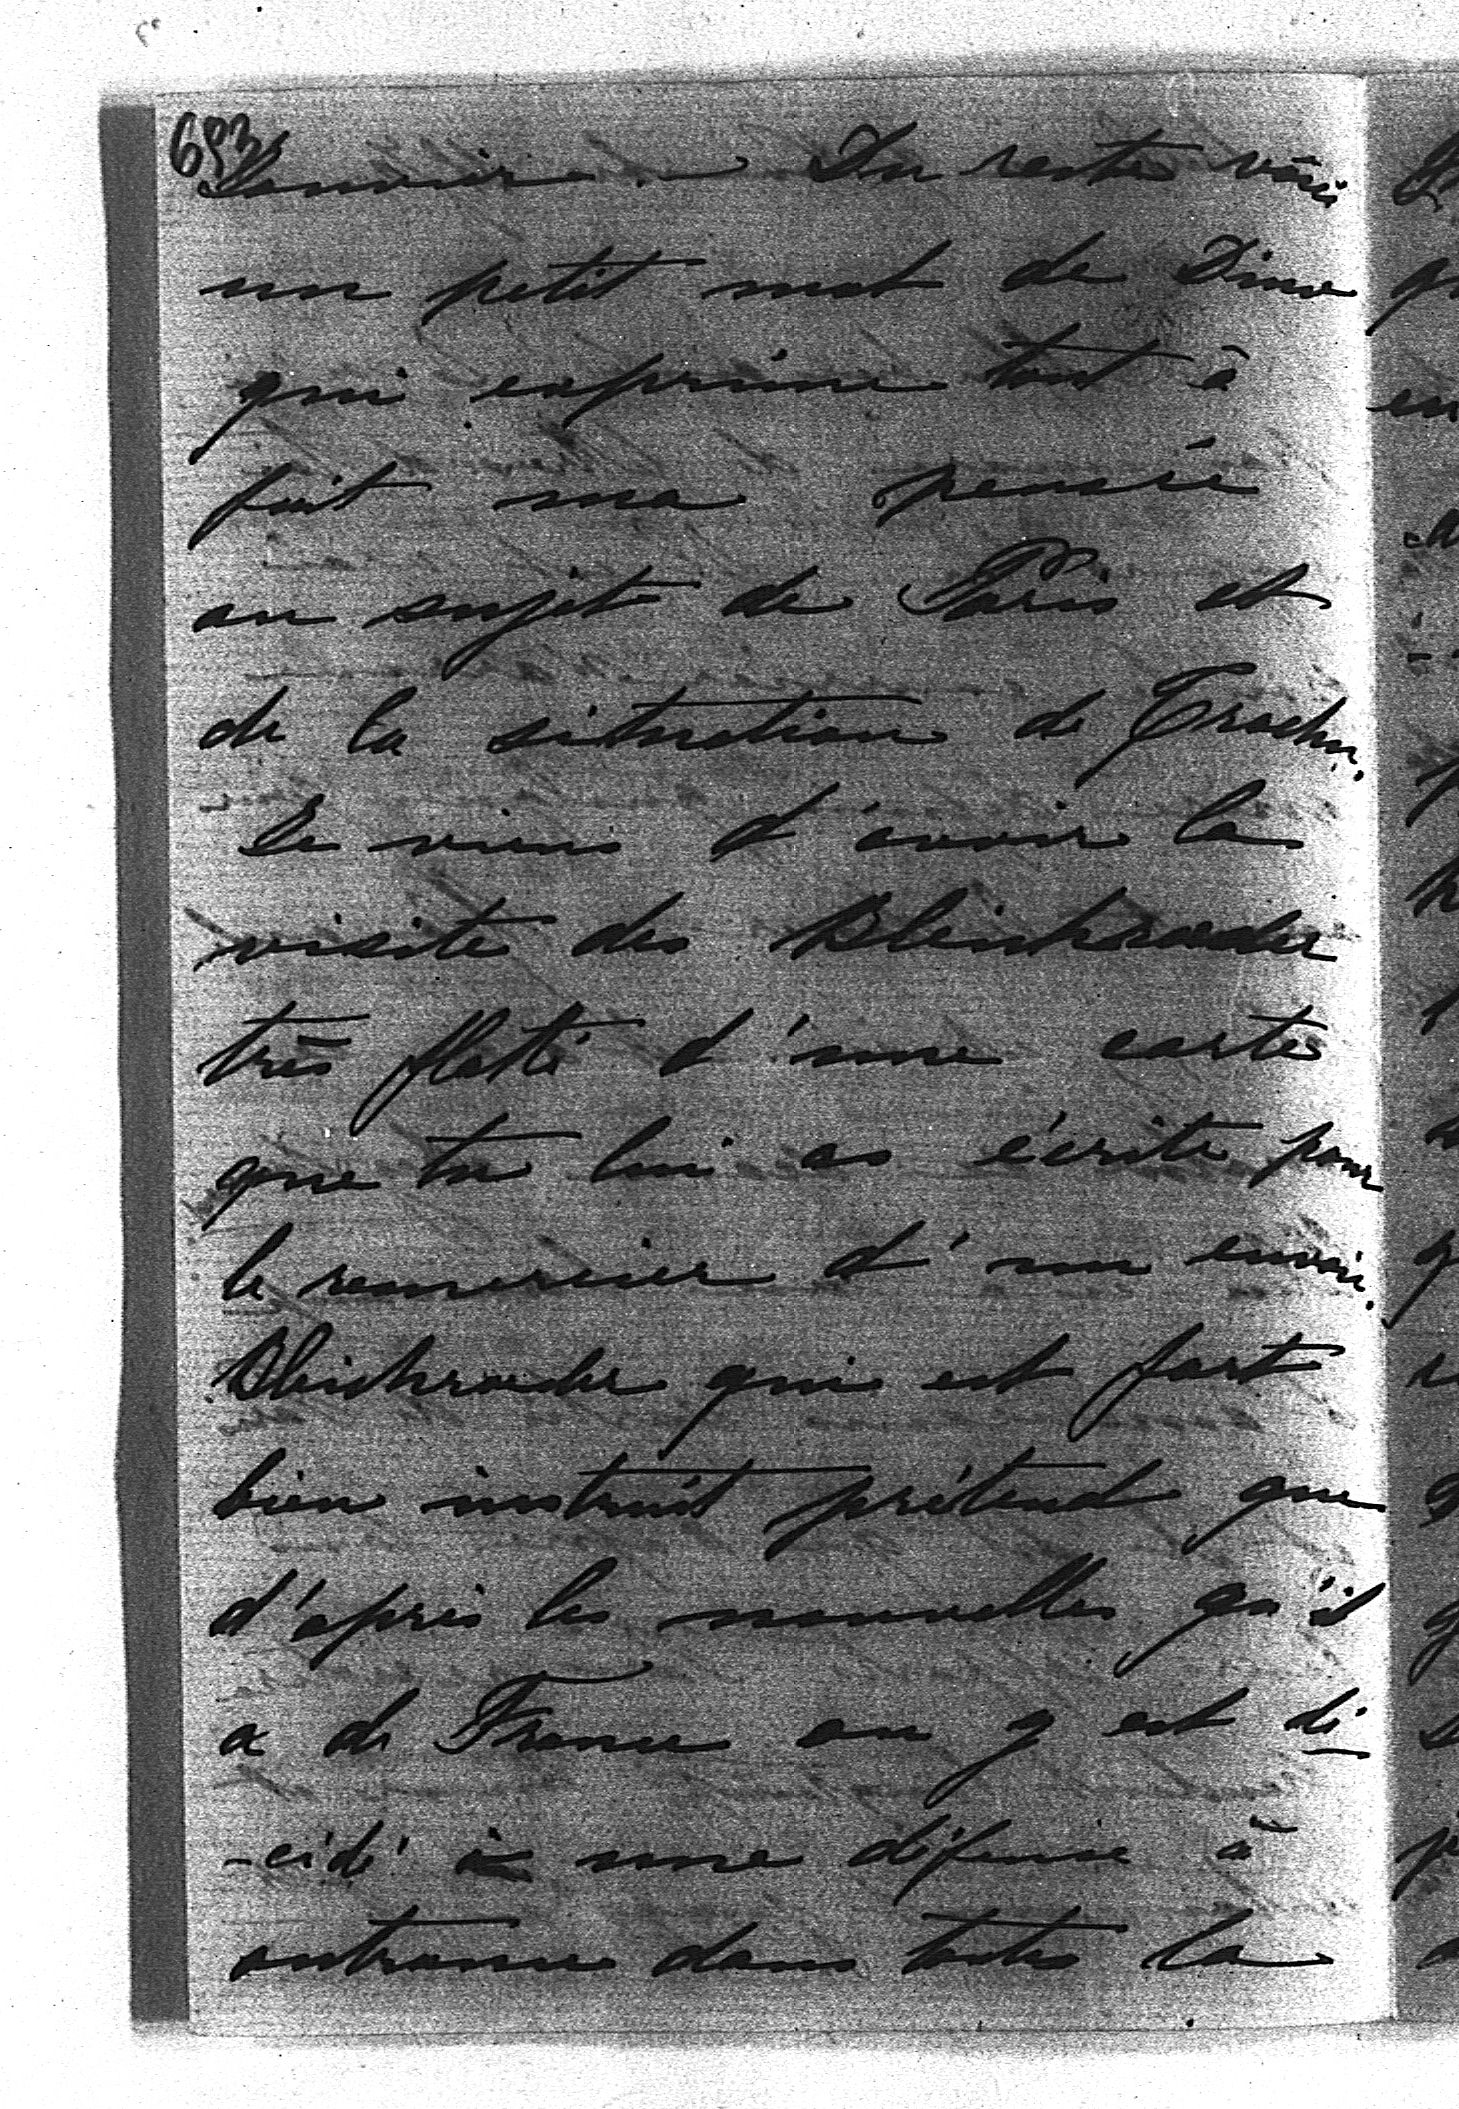 693
Janvier. — Du reste voici
un petit mot de Dino
qui exprime tout à
fait ma pensée
au sujet de Paris et
de la situation de Trochu.
Je viens d'avoir la
visite des Bleichroeder
très flatté d'une carte
que tu lui as écrite pour
le remercier d'un envoi.
Bleichroeder qui est fort
bien instruit prétend que
d'après les nouvelles qu'il
a de France on y est dé
-cidé à une défense à
outrance dans toute la